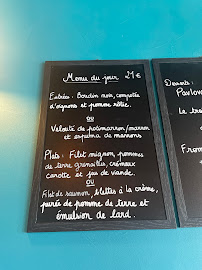 Menu du jour 21€
Entrées : Boudin noir, compotée
d'oignons et pomme rôtie.
ou
Velouté de potimarron/marron
et espuma de marrons
Plats : Filet mignon, pommes
de terre grenailles, crémeux
carotte et jus de viande.
ou
Filet de saumon, blettes à la crème,
purée de pomme de terre et
émulsion de lard.
Desserts :
Pavlov
Le tr
ou
From